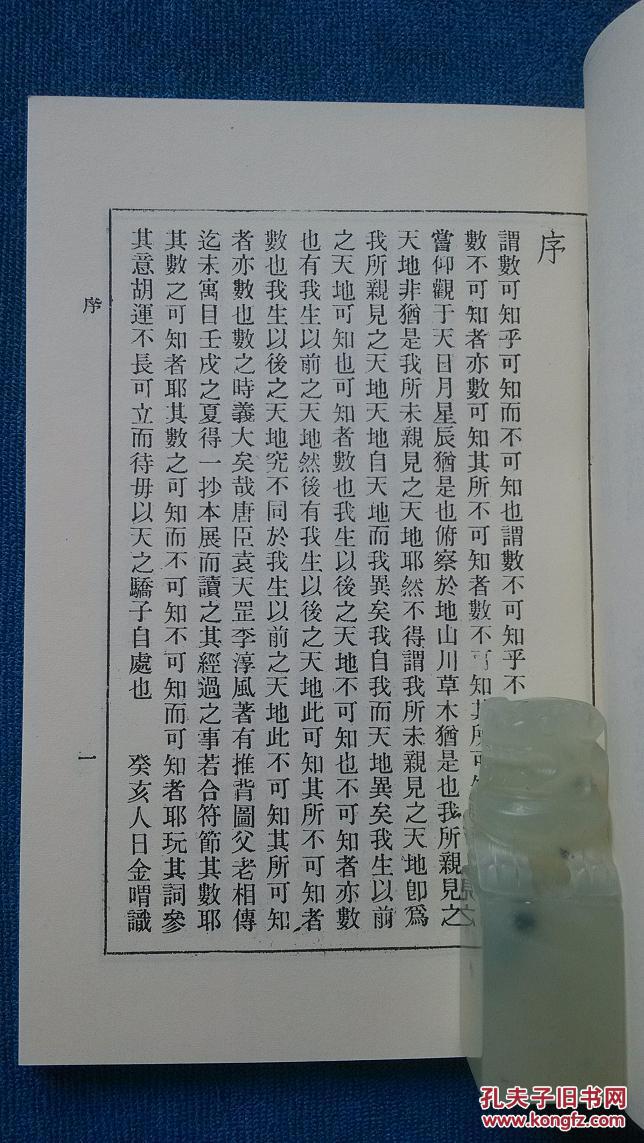 序
謂數可知乎可知而不可知也謂數不可知乎不
數不可知者亦數可知其所不可知者數不可知其所可
嘗仰觀于天日月星辰猶是也俯察於地山川草木猶是也我所親見之
天地非猶是我所未親見之天地耶然不得謂我所未親見之天地卽爲
我所親見之天地天地自天地而我異矣我自我而天地異矣我生以前
之天地可知也可知者數也我生以後之天地不可知也不可知者亦數
也有我生以前之天地然後有我生以後之天地此可知其所不可知者
數也我生以後之天地究不同於我生以前之天地此不可知其所可知
者亦數也數之時義大矣哉唐臣袁天罡李淳風著有推背圖父老相傳
迄未寓目壬戌之夏得一抄本展而讀之其經過之事若合符節其數耶
其數之可知者耶其數之可知而不可知不可知而可知者耶玩其詞參
其意胡運不長可立而待毋以天之驕子自處也 癸亥人日金喟識
序
一
孔夫子旧书网
www.kongfz.com